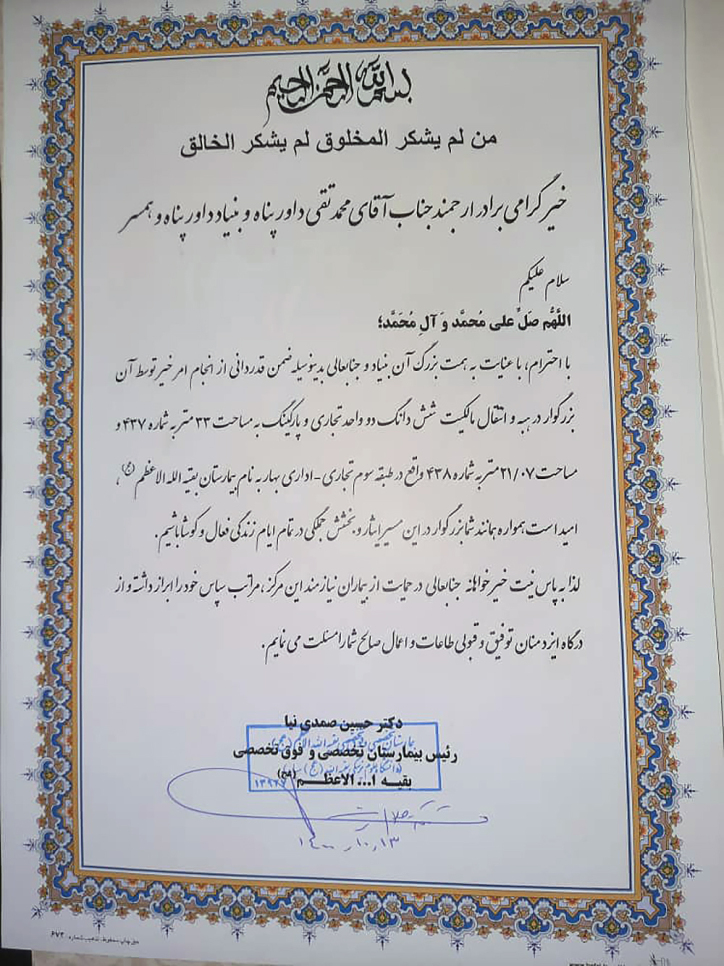 بسم الله الرحمن الرحیم
من لم یشکر المخلوق لم یشکر الخالق
خیر گرامی برادر ارجمند جناب آقای محمد تقی داور پناه و بنیاد داور پناه و همسر
سلام علیکم
اللَّهُم صَلِّ علی مُحمَّد وَ آلِ مُحَمَّد؛
با احترام، با عنایت به همت بزرگ آن بنیاد و جنابعالی بدینوسیله ضمن قدردانی از انجام امر خیر توسط آن
بزرگوار در هبه و انتقال مالکیت شش دانگ دو واحد تجاری و پارکینگ به مساحت ۳۳ متر به شماره ۴۳۷ و
مساحت ۲۱/۰۷ متر به شماره ۴۳۸ واقع در طبقه سوم تجاری - اداری بهار به نام بیمارستان بقیه الله الاعظم (عج) ،
امید است همواره همانند شما بزرگوار در این مسیر ایثار و بخشش جملگی در تمام ایام زندگی فعال و کوشا باشیم.
لذا به پاس نیت خیر خواهانه جنابعالی در حمایت از بیماران نیازمند این مرکز ، مراتب سپاس خود را ابراز داشته و از
درگاه ایزد منان توفیق و قبولی طاعات و اعمال صالح شما را مسئلت می نمایم.
دکتر حسین صمدی نیا
رئیس بیمارستان تخصصی و فوق تخصصی
بقیه ا... الاعظم (عج)
۱۴۰۰/۱۰/۱۳